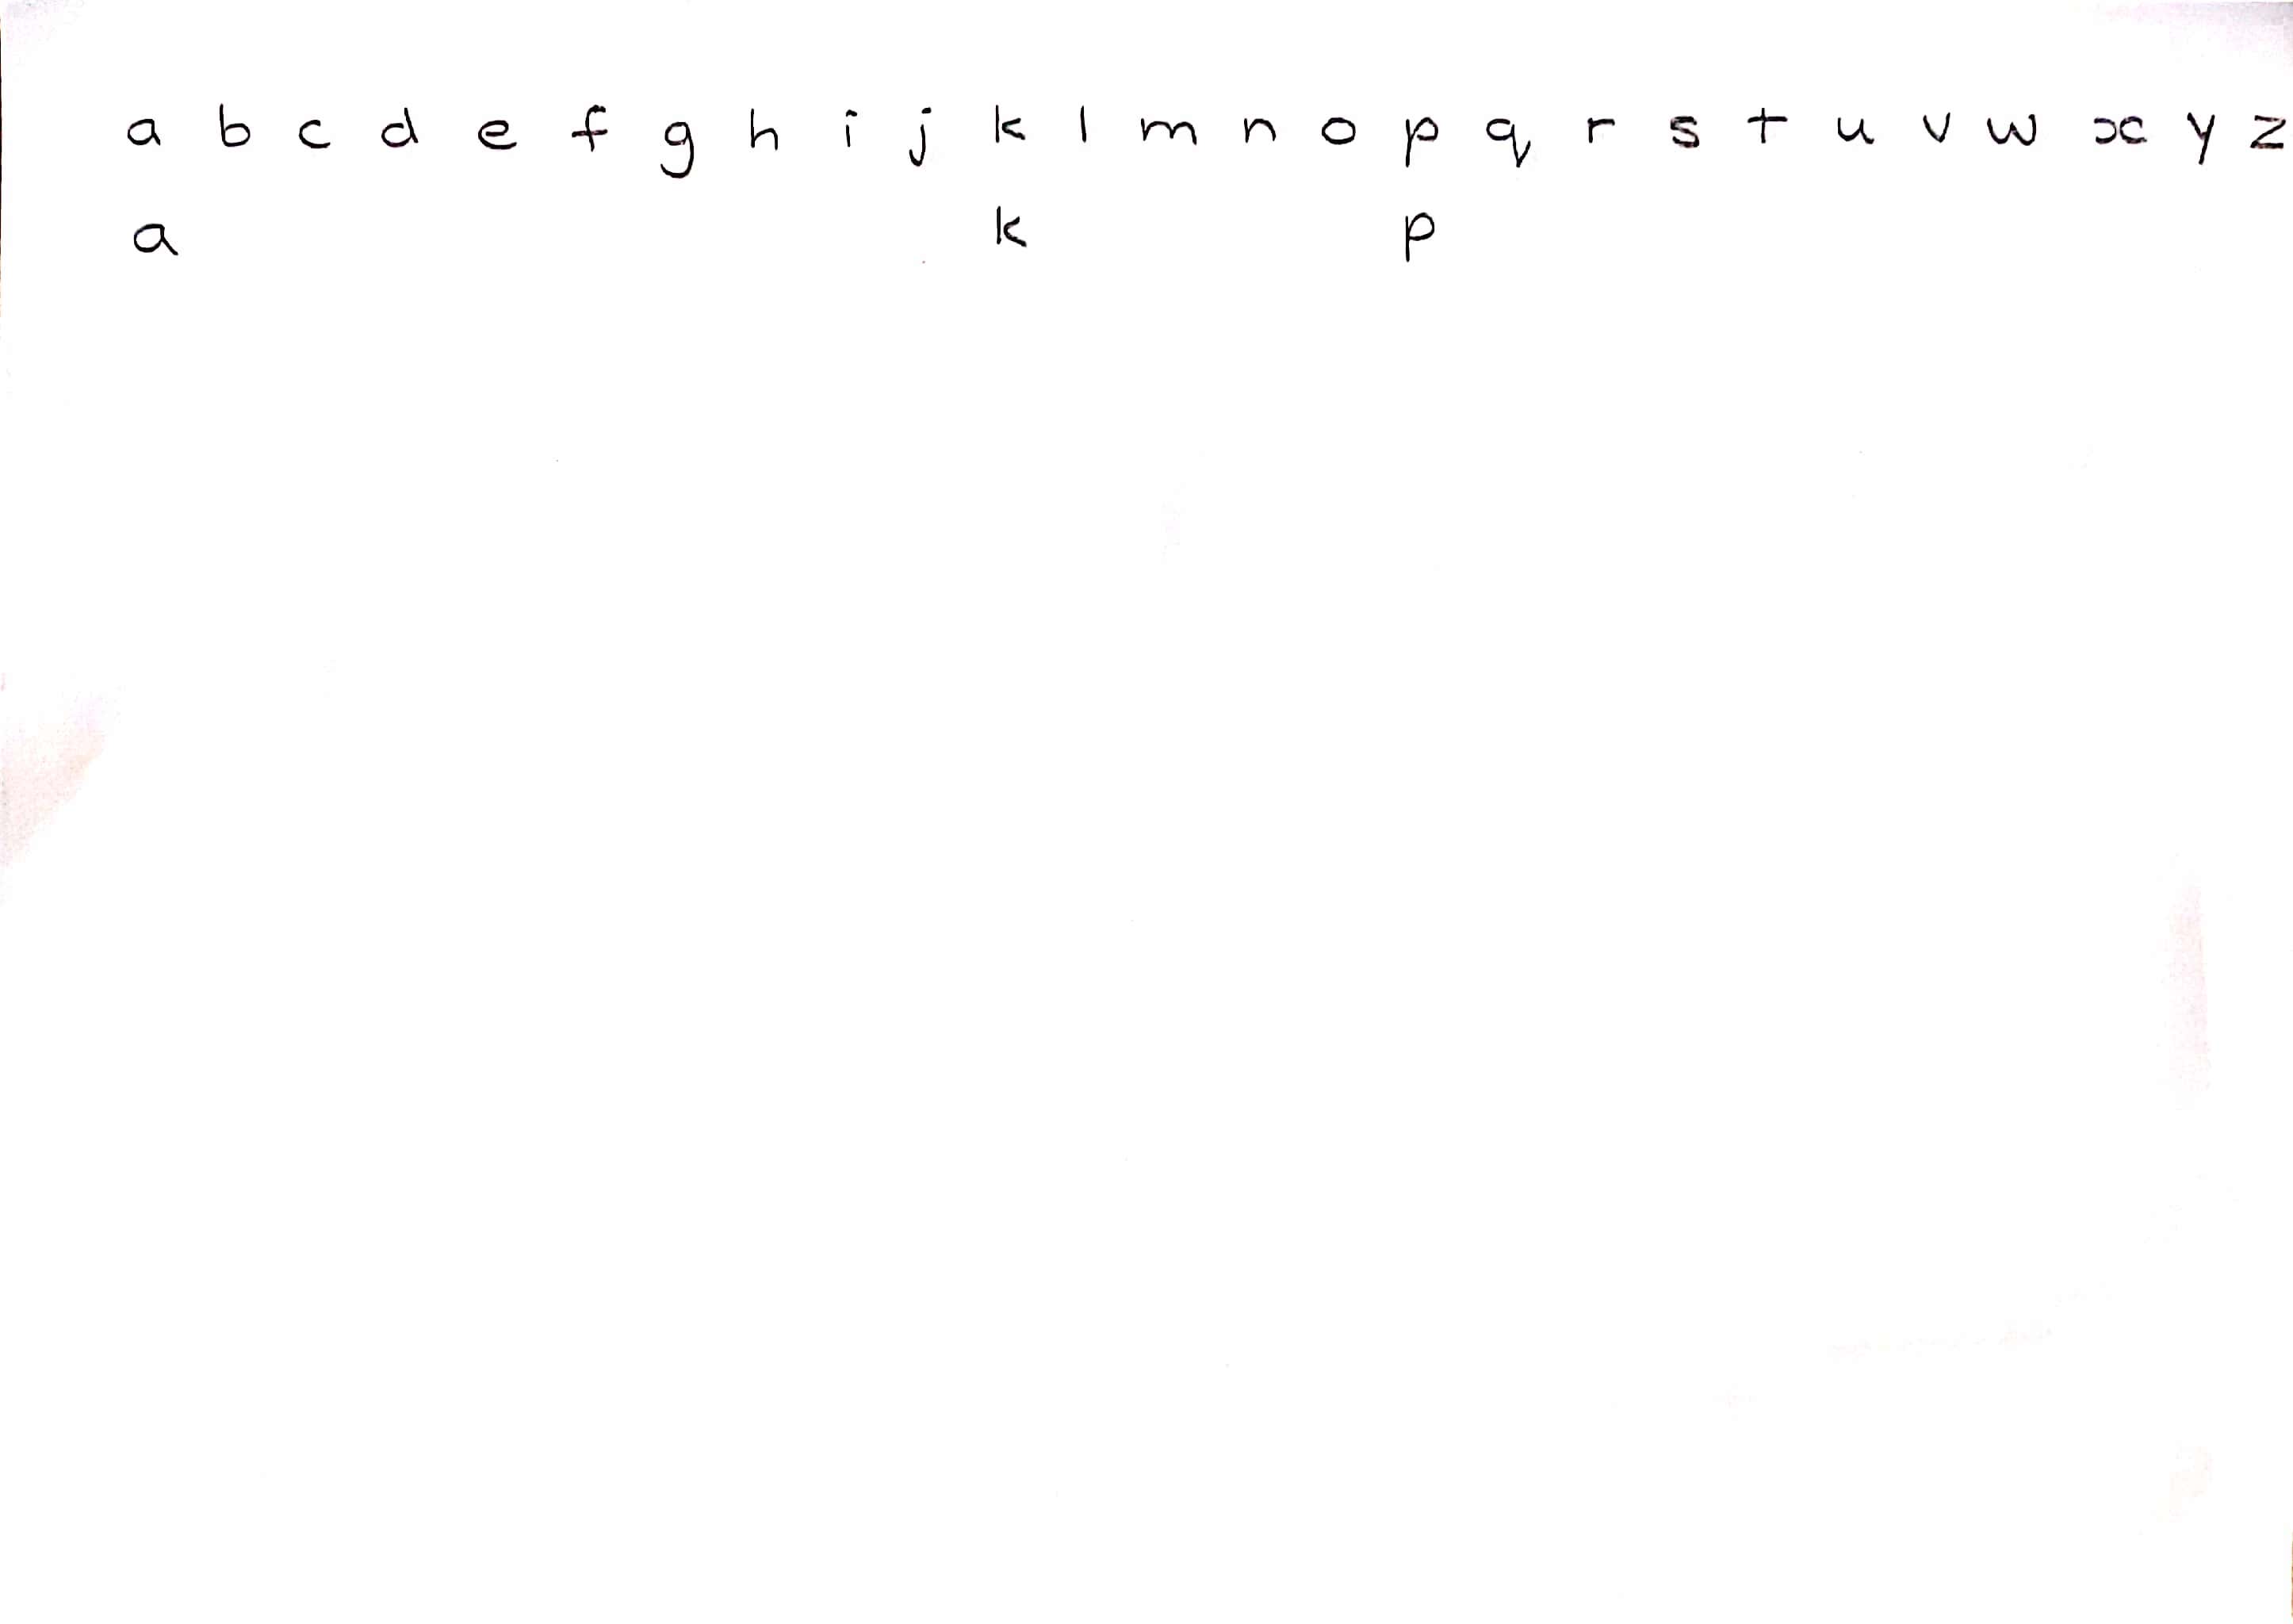 a b c d e f g h i j k l m n o p q r s t u v w x y z
a k p